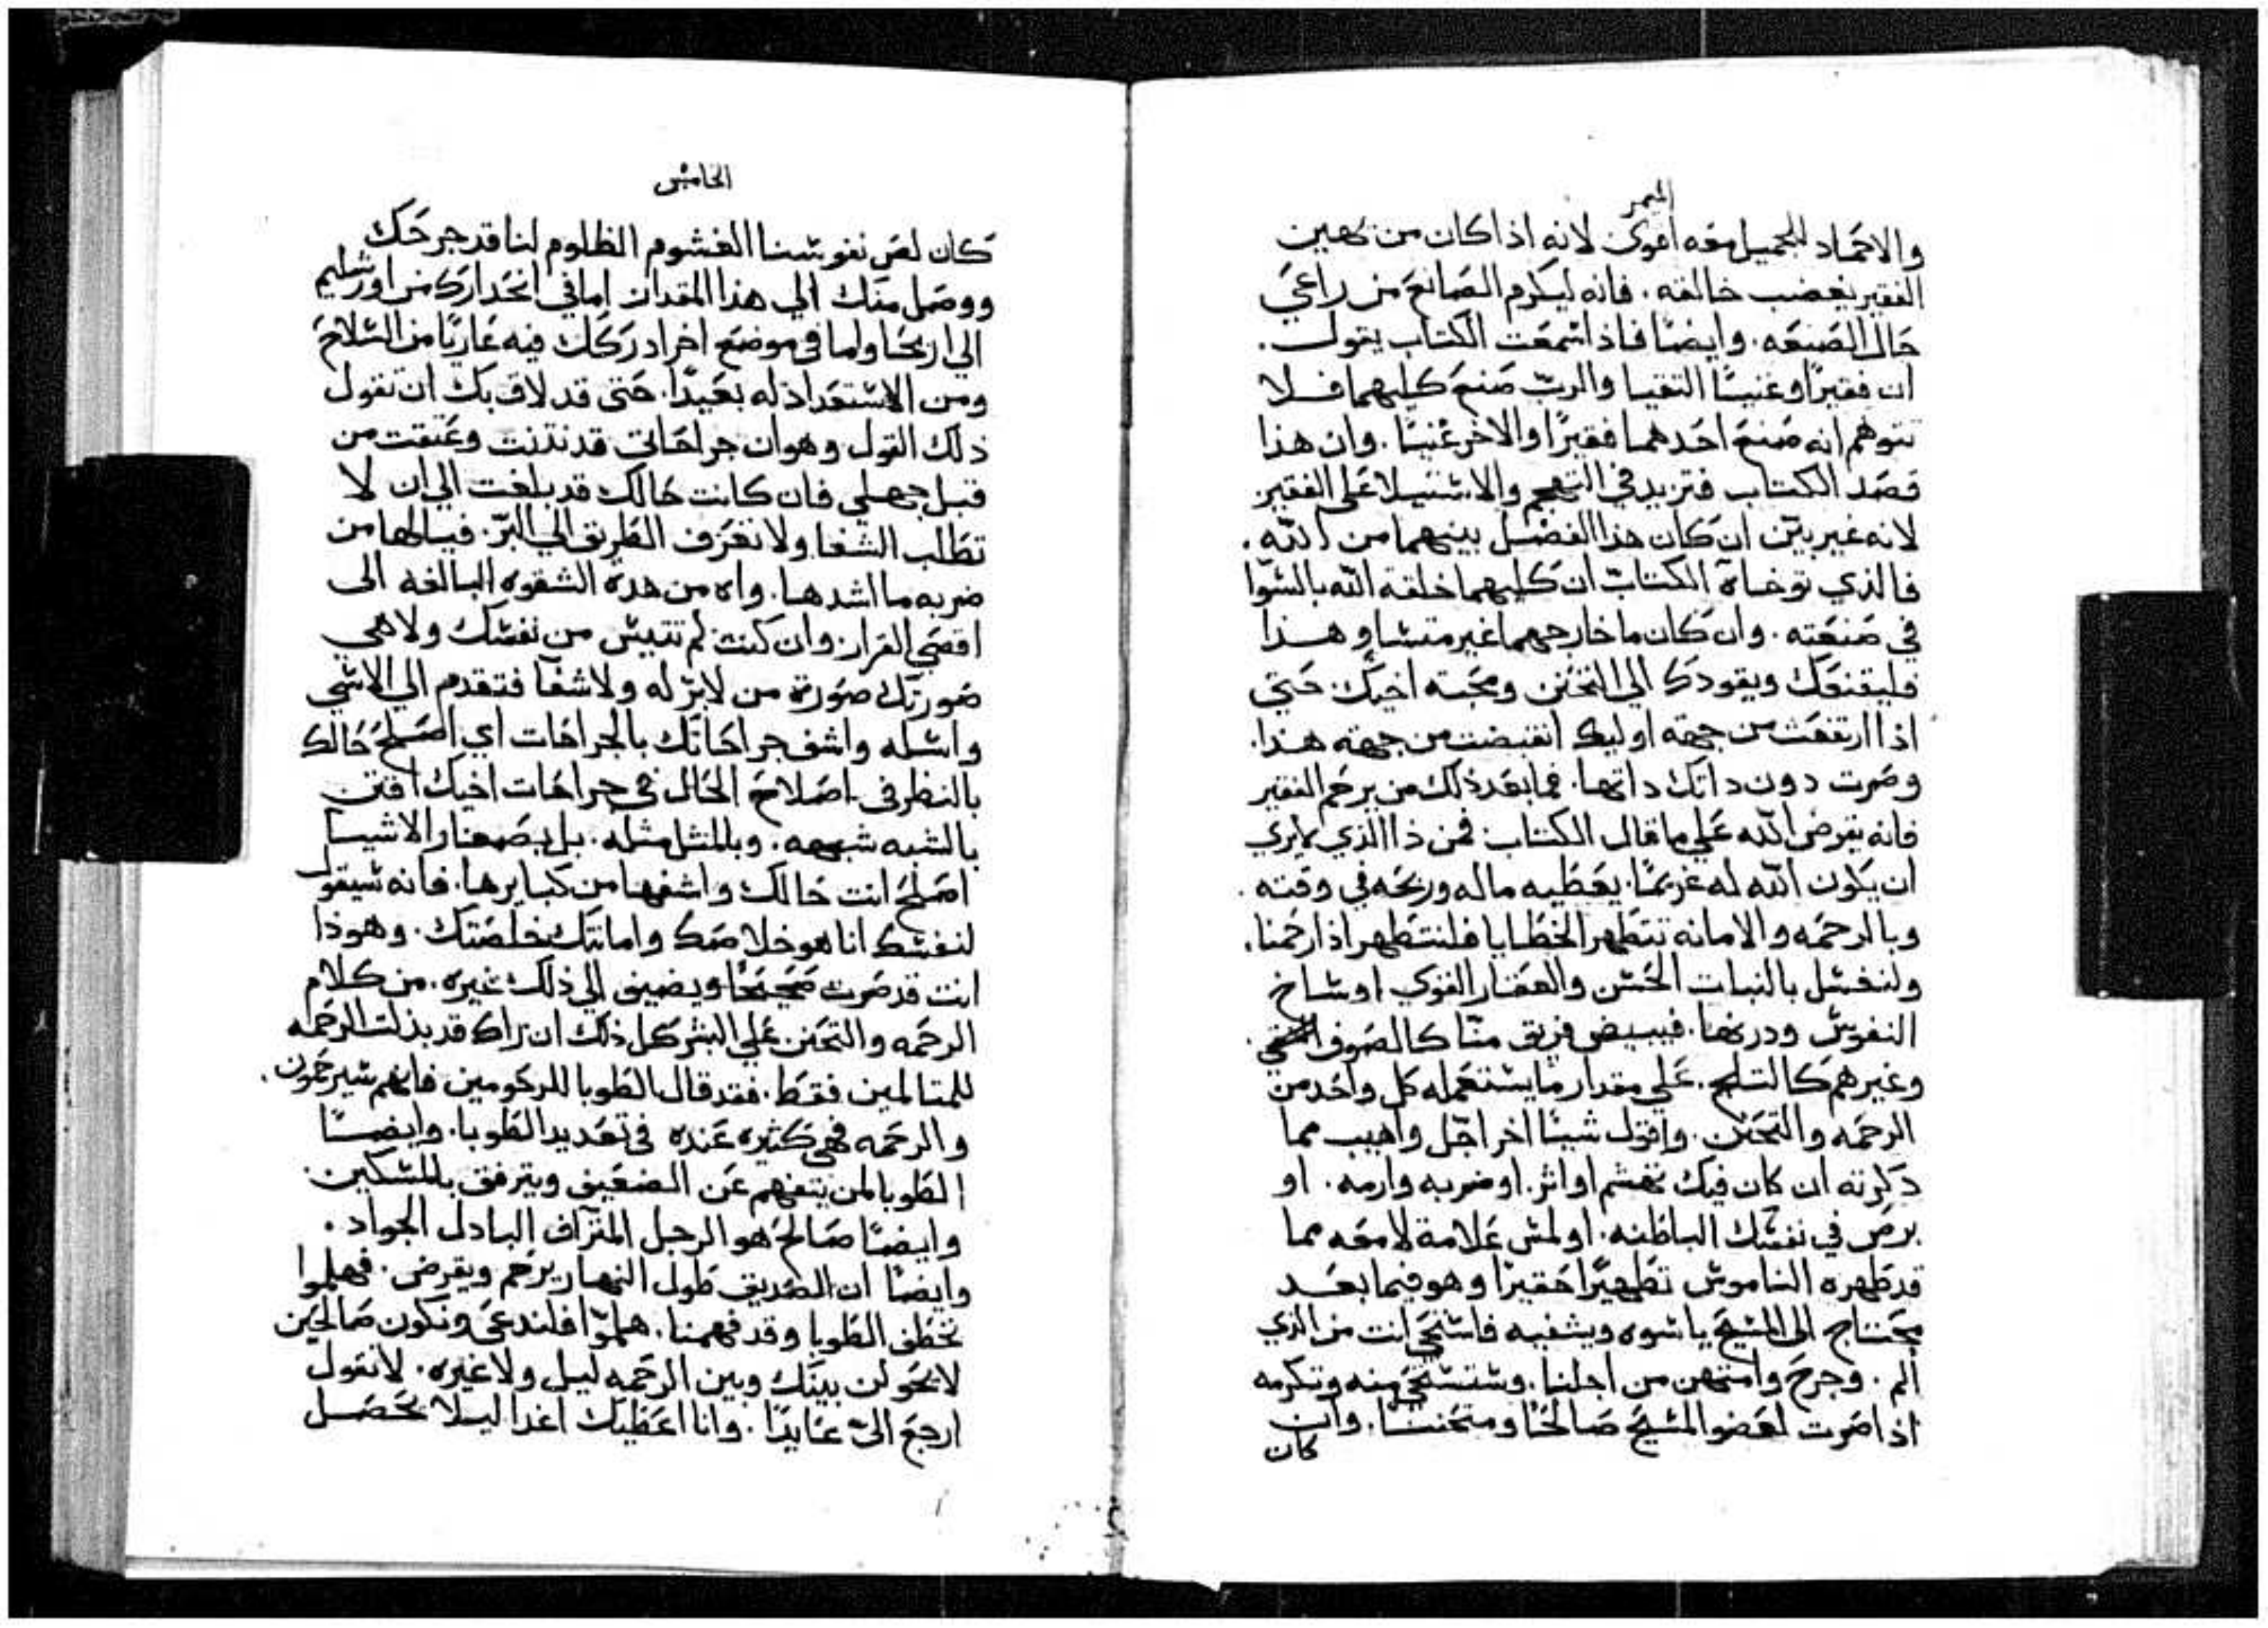 الميمر
والاحماد للجميل معه اقوى لانه اذا كان من يهين
الفقير يغضب خالقه. فانه ليكرم الصانع من راعي
حال الصنعه. وايضًا فاذا سمعت الكتاب يقول.
ان فقيرًا وغنيًا التقيا والرب صنع كليهما فلا
تتوهم انه صنع احدهما فقيرًا والاخر غنيًا. وان هذا
قصد الكتاب فتزيد في التهجم والاستيلا على الفقير
لانه غير بين ان كان هذا الفضل بينهما من الله.
فالذي توخاة الكتاب ان كليهما خلقة الله بالسوا
في صنعته. وان كان ما خارجهما غير متساو هذا
فليقنعك ويقودك الي التحنن ومحبة اخيك. حتي
اذا ارتفعت من جهة اوليك انقبضت من جهة هذا.
وصرت دون داتك داتها. فما بعد ذلك من يرحم الفقير
فانه يقرض الله علي ما قال الكتاب فمن ذا الذي لا يري
ان يكون الله له غريمًا. يعطيه ماله وربحه في وقته.
وبالرحمه والامانه تتطهر الخطايا فلنتطهر اذا رحمنا.
ولنغسل بالنبات الحسن والعقار القوي اوساخ
النفوس ودرنها. فيبيض فريق منا كالصوف النقي.
وغيرهم كالثلج. علي مقدار ما يستعمله كل واحد من
الرحمه والتحنن. واقول شيئا اخر اجل واهيب مما
دكرته ان كان فيك تهشم او اثر. او ضربه وارمه. او
برص في نفسك الباطنه. او لمس علامة لامعه مما
قد طهره الناموس تطهيرًا حقيرًا وهو فيما بعد
محتاج الي المسيح ياسوه ويشفيه فاستحي انت من الذي
الم. وجرح وامتهن من اجلنا. وستستحي منه وتكرمه
اذا صرت لعضو المسيح صالحًا ومتحننًا. وان
كان
الخامس
كان لص نفوسنا الغشوم الظلوم لنا قد جرحك
ووصل منك الي هذا المقدار اما في انحدارك من اورشليم
الي اريحا واما في موضع اخر ادركك فيه عاريًا من السلاح
ومن الاستعداد له بعيدًا. حتي قد لاق بك ان تقول
ذلك القول وهو ان جراحاتي قد نتنت وعتقت من
قبل جهلي فان كانت حالك قد بلغت الي ان لا
تطلب الشفا ولا تعرف الطريق الي البر. فيالها من
ضربه ما اشدها. واه من هدة الشقوه البالغه الى
اقصي القرار. وان كنت لم تتيس من نفسك ولا هي
صورتك صورة من لا بر له ولا شفآ فتقدم الي الاسي
واسله واشف جراحاتك بالجراحات اي اصلح حالك
بالنظر في اصلاح الحال في جراحات اخيك اقتن
بالشبه شبهه. وبالمثل مثله. بل بصغار الاشيا
اصلح انت حالك واشفها من كبايرها. فانه سيقول
لنفسك انا هو خلاصك وامانتك خلصتك. وهوذا
انت قد صرت صحيحًا ويضيف الي ذلك غيره. من كلام
الرحمه والتحنن علي البشر كل ذلك ان راك قد بذلت الرحمه
للمتالمين فقط. فقد قال الطوبا للرحومين فانهم سيرحمون.
والرحمه فهي كثيره عنده في تعديد الطوبا. وايضًا
الطوبا لمن يتفهم عن الضعيف ويترفق بالمسكين.
وايضًا صالح هو الرجل المتراف البادل الجواد.
وايضًا ان الصديق طول النهار يرحم ويقرض. فهلموا
نخطف الطوبا وقد فهمنا. هلموا فلندعى ونكون صالحين
لا يحولن بينك وبين الرحمه ليل ولا غيره. لا تقول
ارجع الى عايدًا. وانا اعطيك اغدا ليلا تحصل